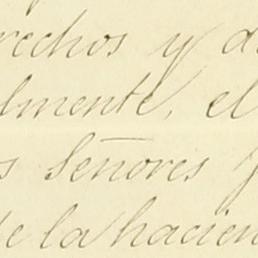 rechos y d
lmente, el
s Señores
de la hacien